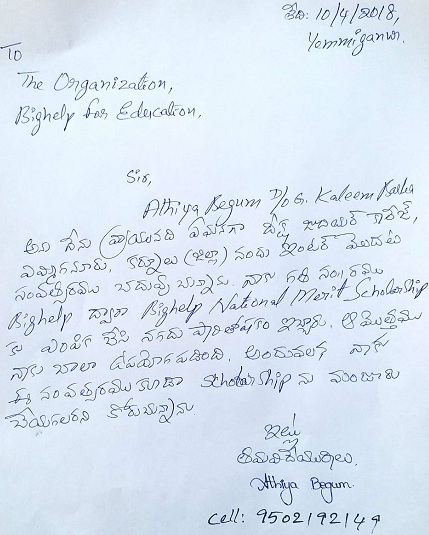 తేది: 10/4/2018,
Yemmiganur.
To
The Organization,
Bighelp for Education.
Sir,
Athiya Begum D/o G. Kaleem Basha
అను నేను వ్రాయునది ఏమనగా జూనియర్ కాలేజ్,
ఎమ్మిగనూరు, కర్నూలు (జిల్లా) నందు ఇంటర్ మొదటి
సంవత్సరము చదువు చున్నాను. నాకు గత సం,,రము
Bighelp ద్వారా Bighelp National Merit Scholarship
కు ఎంపిక చేసి నగదు పారితోషకం ఇచ్చారు. ఆ మొత్తము
నాకు చాలా ఉపయోగపడింది. అందువలన నాకు
ఈ సంవత్సరము కూడా Scholarship ను మంజూరు
చేయగలరని కోరుచున్నాను
ఇట్లు
తమ విదేయురాలు,
Athiya Begum.
Cell: 9502192149